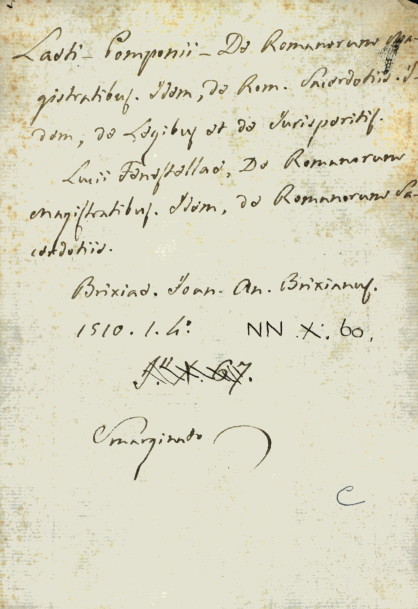 Laeti - Pomponii - De Romanorum Ma-
gistratibus. Idem, de Rom. Sacerdotiis. I-
dem, de Legibus et de Jurisperitis.
Lucii Fenestellae, De Romanorum
Magistratibus. Idem, de Romanorum Sa-
cerdotiis.
Brixiae. Joan. An. Brixianus.
1510. 1. 4º.
NN .X. 60.
Smarginado
C